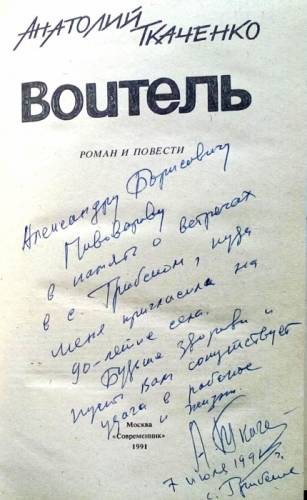 Анатолий Ткаченко
Воитель
РОМАН И ПОВЕСТИ
Александру Борисовичу
Пивоварову
в память о встречах
в с. Грибском, куда
меня пригласили на
90-летие села.
Будьте здоровы и
пусть Вам сопутствует
удача в работе
и жизни.
А. Ткаче
7 июля 199 г.
Москва
«Современник»
1991